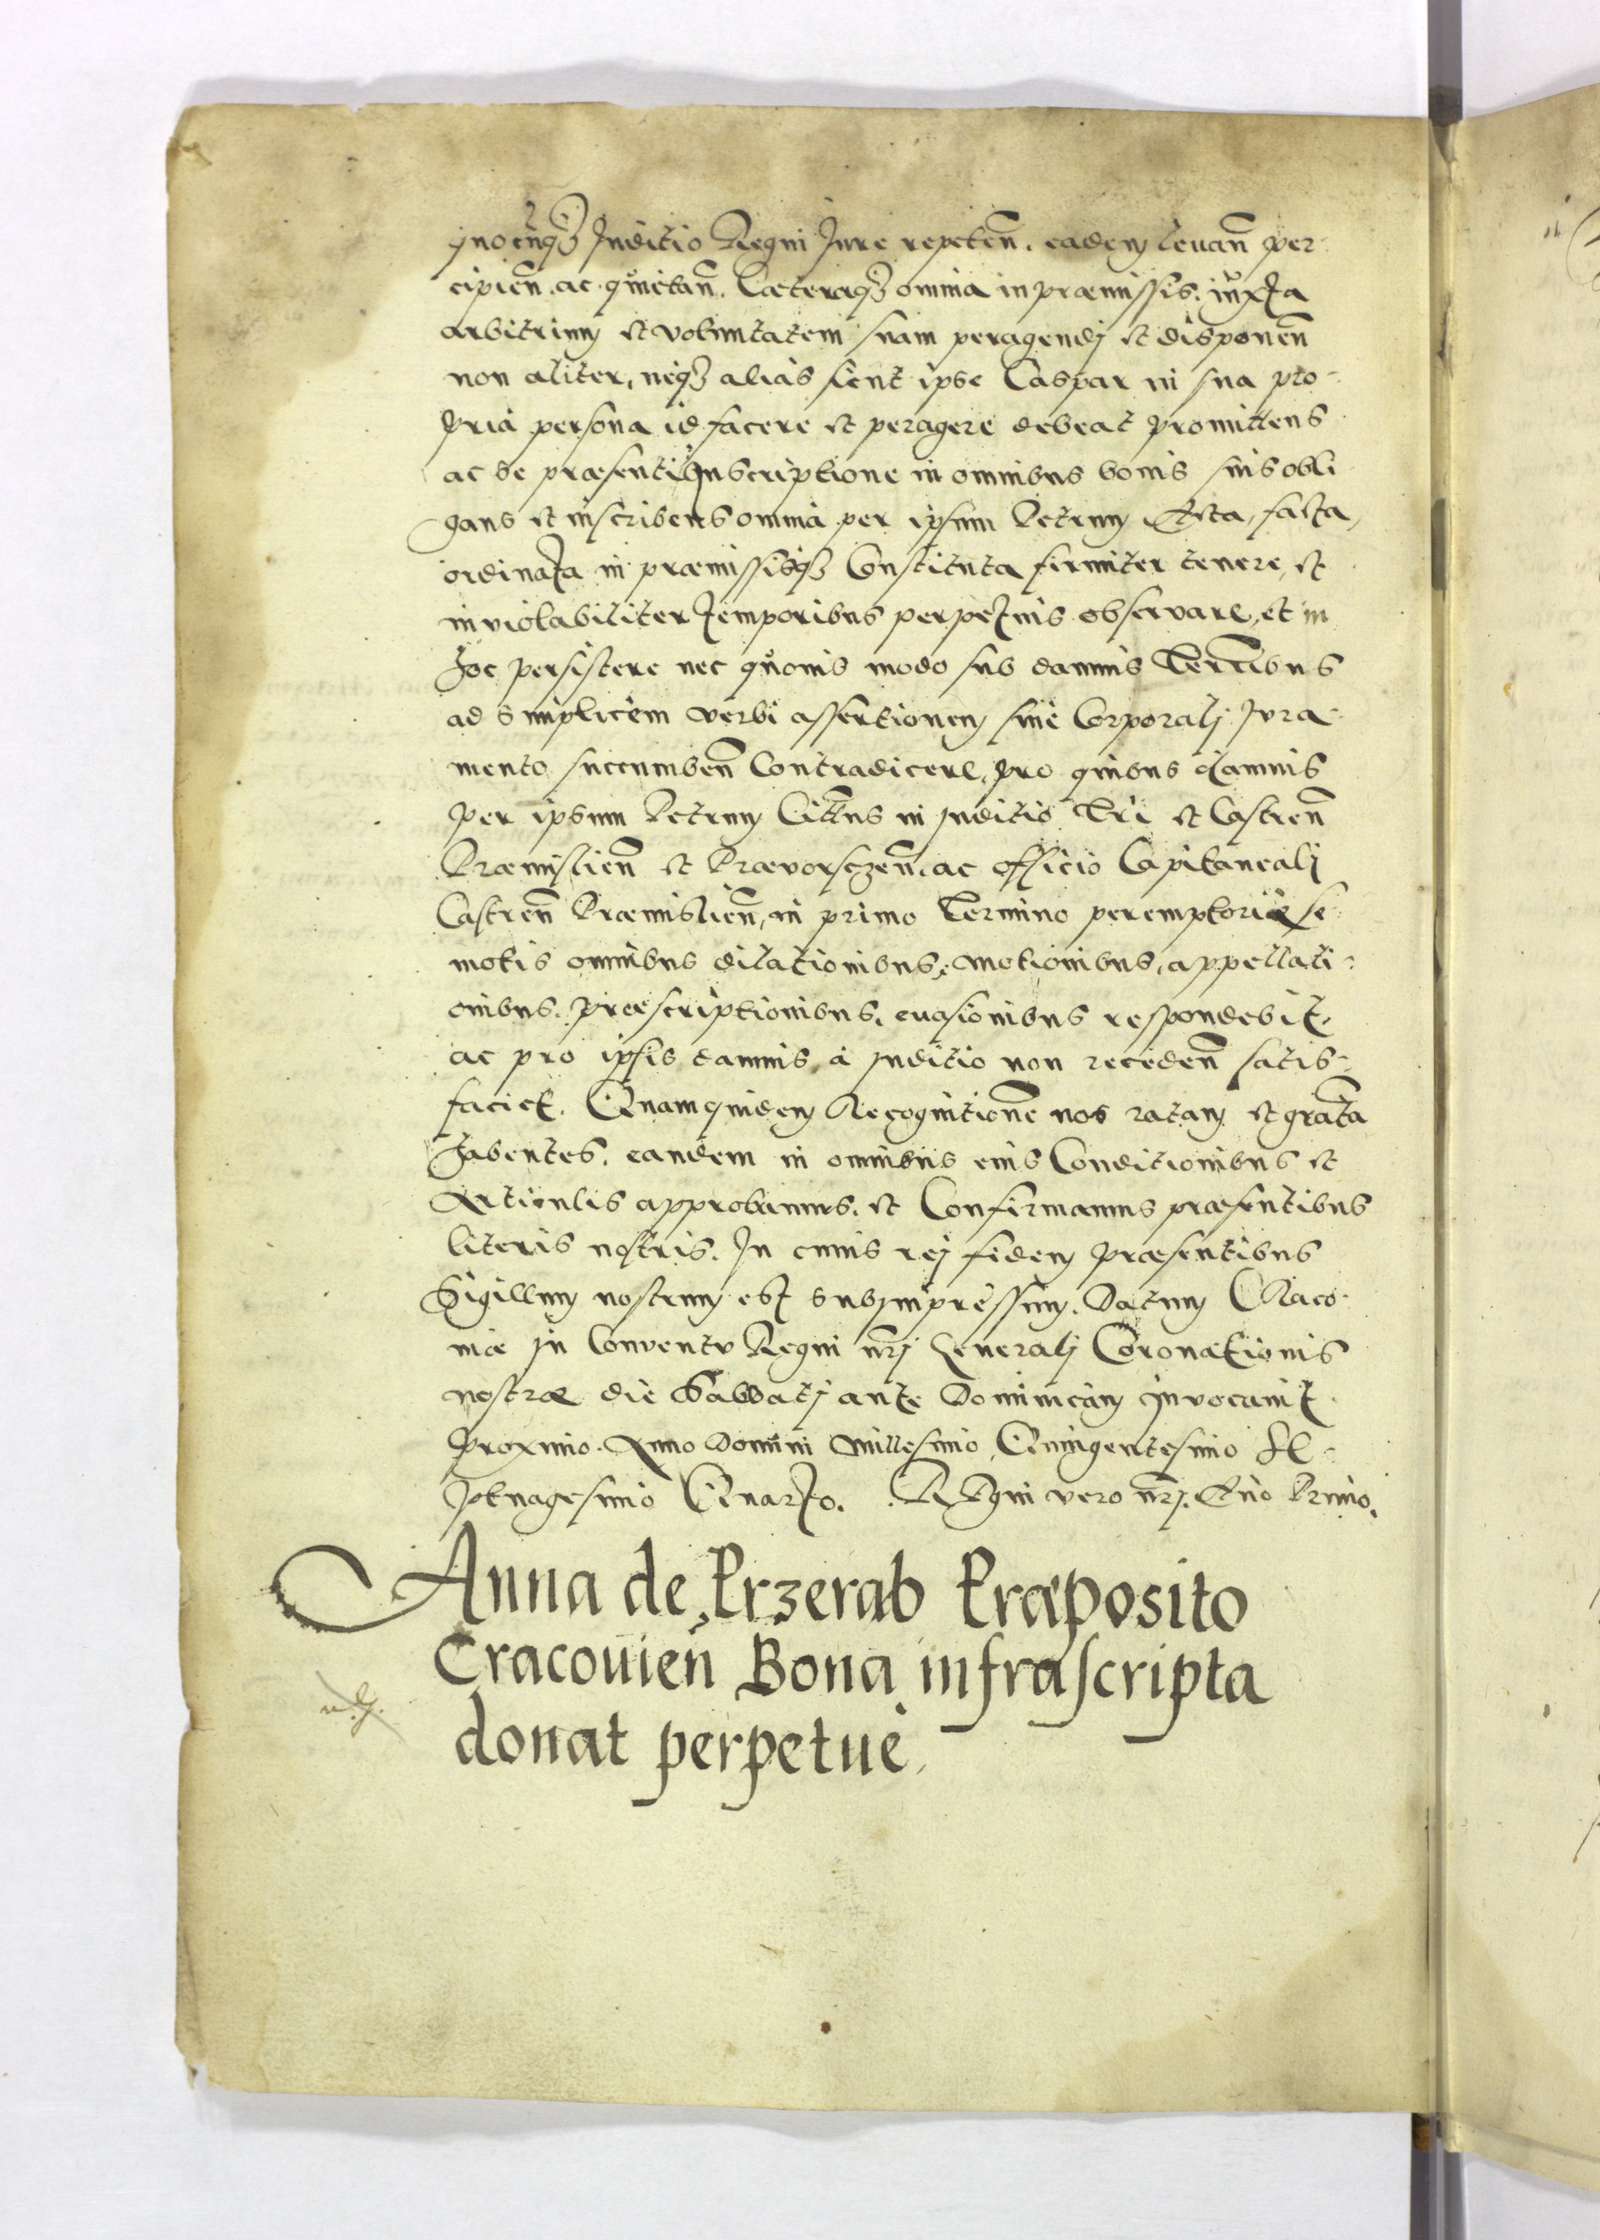 quocunqꝫ Juditio Regni Jure repeten̄. eadem levan̄ per-
cipien̄. ac quietan̄. Caeteraqꝫ omnia in praemissis. iuxta
arbitrium et voluntatem suam peragendj et disponen̄
non aliter, neqꝫ alias sicut ipse Caspar in sua pro-
pria persona id facere et peragere debeat promittens
ac se praesenti Inscriptione in omnibus bonis suis obli
gans et inscribens omnia per ipsum Petrum Acta, facta,
ordinata in praemissisqꝫ Constituta firmiter tenere, et
inviolabiliter temporibus perpetuis observare, et in
hoc persistere nec quovis modo sub damnis terrībus
ad simplicem verbi assertionem sine Corporalj Jura-
mento succumben̄ Contradicere, pro quibus damnis
per ipsum Petrum Citt̄us in Juditio Trī et Castren̄
Praemislien̄ et Praevorsczen̄. ac officio Capitanealj
Castren̄ Praemislien̄, in primo Termino peremptorie se
motis omnibus dilationibus, motionibus, appellati-
onibus. praescriptionibus. evasionibus respondebit,
ac pro ipsis damnis à Juditio non receden̄ satis-
faciet. Quamquidem Recognitione nos ratam et grata
habentes. eandem in omnibus eius Conditionibus et
Articulis approbamus. et Confirmamus praesentibus
literis nostris. In cuius rej fidem praesentibus
Sigillum nostrum est subimpressum. Datum Craco-
viae in Conventu Regni nr̄j Generalj Coronationis
nostrae die Sabbatj ante Dominicam Invocavit
proximo. Anno Domini Millesimo Quingentesimo Se-
ptuagesimo Quarto. Regni vero nr̄j. An̄o Primo.
Anna de Przerab Praeposito
Cracouien̄ Bona infrascripta
donat perpetuè